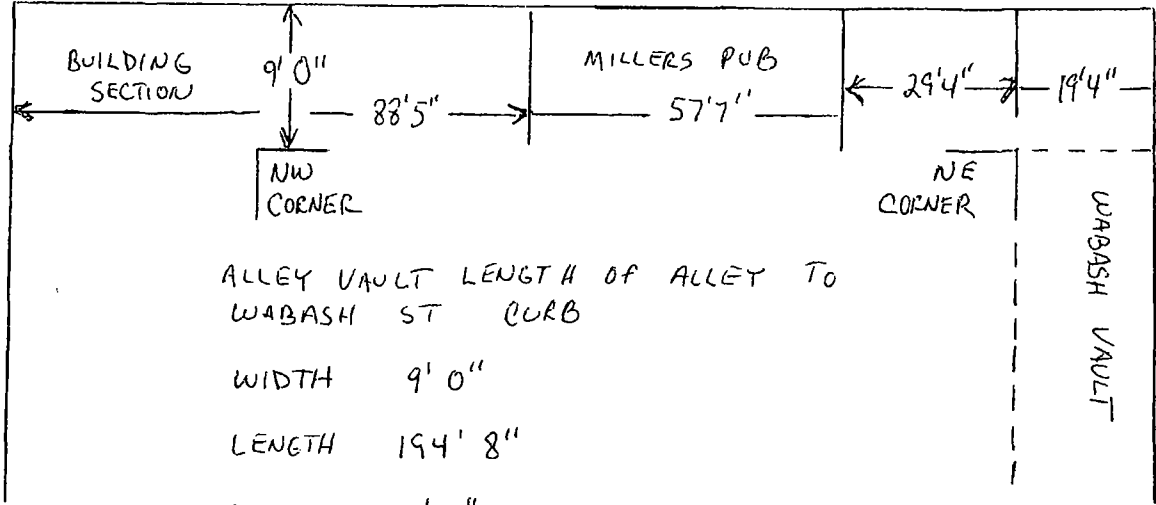 BUILDING
SECTION
9' 0"
88'5"
MILLERS PUB
57'7"
29'4"
19'4"
NW
CORNER
NE
CORNER
WABASH VAULT
ALLEY VAULT LENGTH OF ALLEY TO
WABASH ST CURB
WIDTH 9' 0"
LENGTH 194' 8"